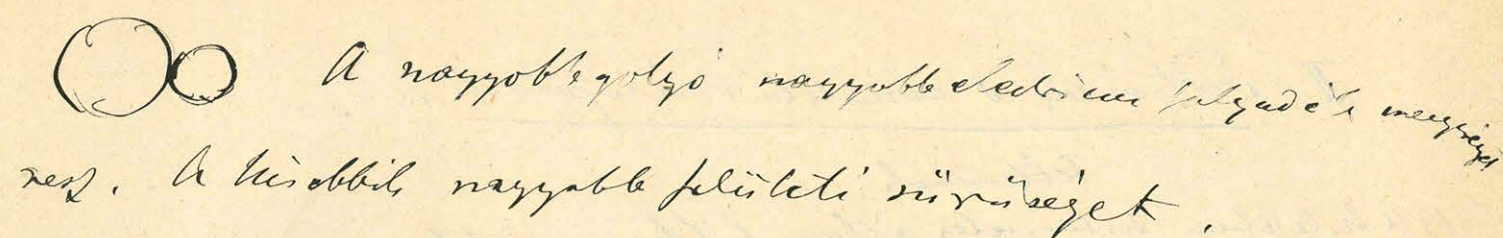 A nagyobb golyó nagyobb electrimu folyadék mennyiséget
vesz. A kisebbik nagyobb felületi sűrűséget.